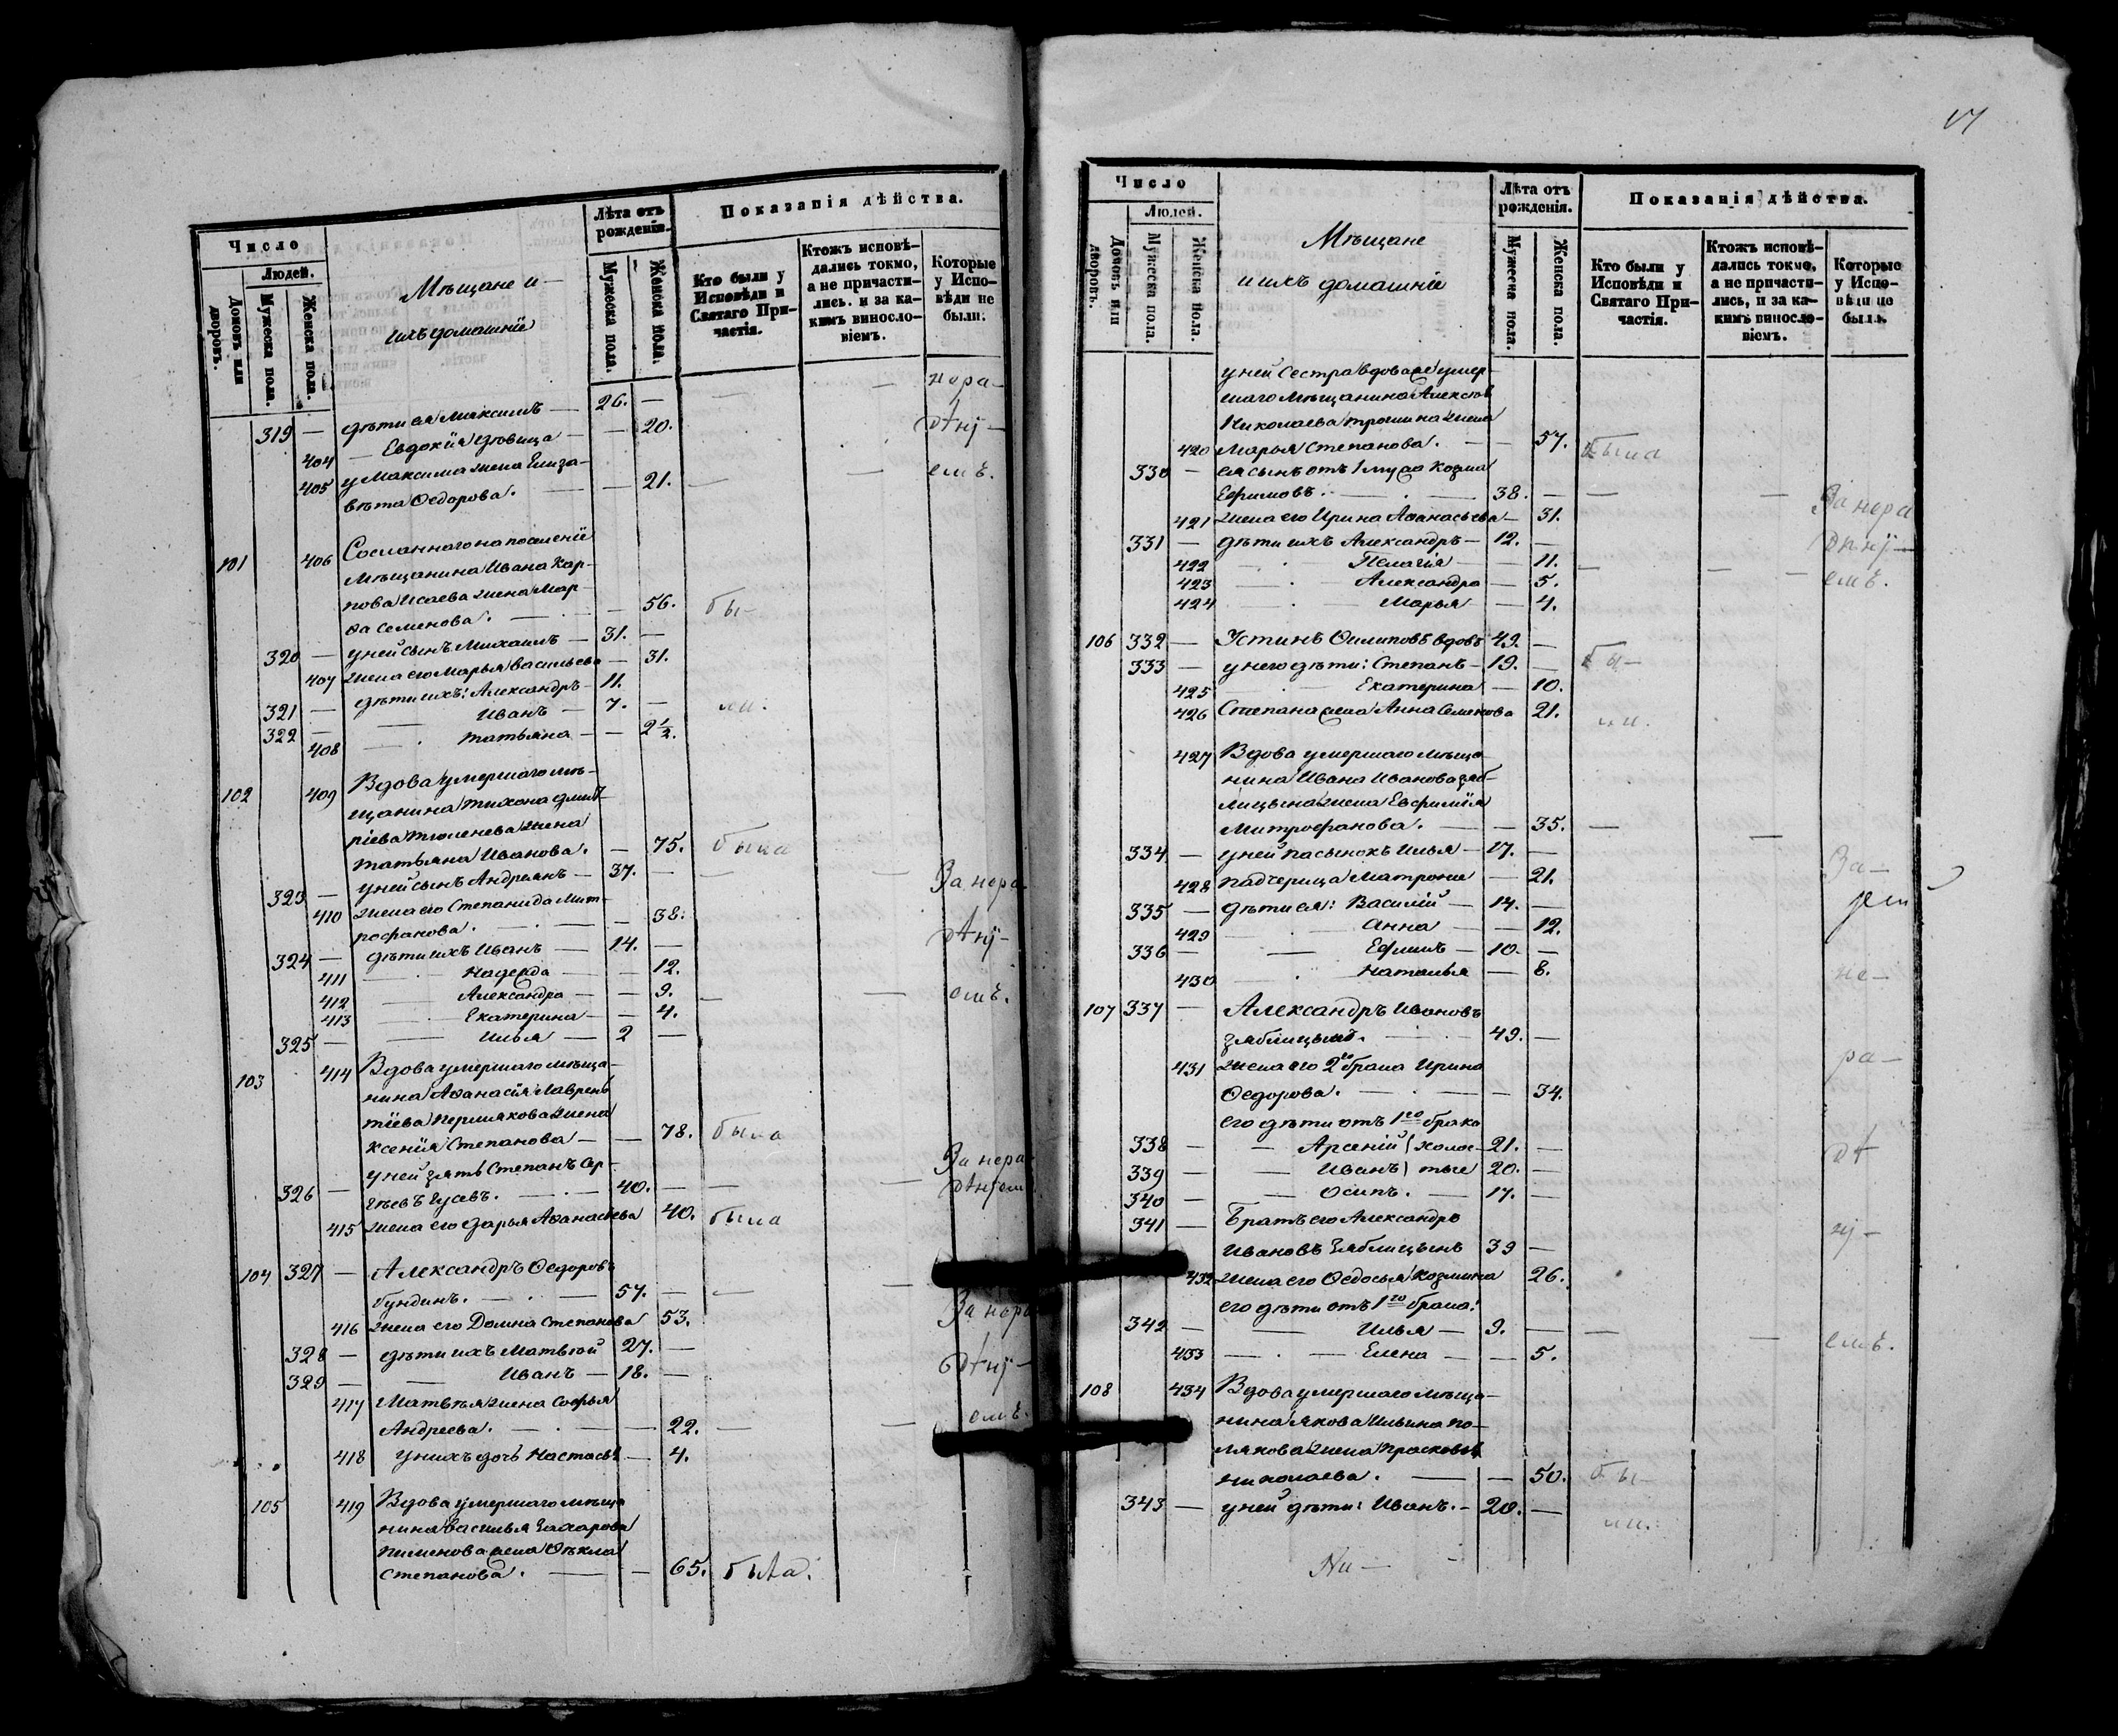 Число
Людей.
Домовъ или дворовъ.
Мужеска пола.
Женска пола.
Мѣщане и
ихъ домашнiе
Лѣта отъ рожденiя.
Мужеска пола.
Женска пола.
Показанiя дѣйства.
Кто были у Исповѣди и Святаго Причастiя.
Ктожъ исповѣдались токмо, а не причастились. и за какимъ винословiемъ.
Которые у Исповѣди не были.
нера-
319 — дѣти ея Максимъ — 26. —
404 — Евдокiя дѣвица — — 20. дѣнi-
405 у Максима жена Елиза-
вѣта Ѳедорова. — — 21. — емъ.
101 406 Сосланнаго на поселенiе
мѣщанина Ивана Кар-
пова Исаева жена Мар-
ѳа Семенова. — — 56. бы-
320 — у ней сынъ Михаилъ — 31. —
407 жена его Марья Васильева — 31.
321 — дѣти ихъ: Александръ — 11.
322 — Иванъ — 7. — ли.
408 — Татьяна — — 2 1/2.
102 409 Вдова умершаго мѣ-
щанина Тихона Дмит-
рiева Тюленева жена
Татьяна Иванова. — 75. была
323 — у ней сынъ Андреянъ — 37. — — За нера-
410 жена его Степанида Мит-
рофанова. — — 38. дѣнi-
324 — дѣти ихъ Иванъ — 14. —
411 — Надежда — — 12.
412 — Александра — — 9. — емъ.
413 — Екатерина — — 4.
325 — Илья — 2 —
103 414 Вдова умершаго мѣща-
нина Аѳанасiя Лаврен-
тiева Пермякова жена
Ксенiя Степанова — — 78. была
у ней зять Степанъ Сер-
326 — гѣевъ Гусевъ. — 40. — — За нера-
дѣнiем
415 жена его Дарья Аѳанасьева 40. была
104 327 — Александръ Ѳедоровъ
Бундинъ. — 57. — —
416 жена его Домна Степанова 53. За нера
328 — дѣти ихъ Матвѣй 27. —
329 — Иванъ — 18. — дѣнi-
417 Матвѣя жена Софья
Андреева. — — 22. — емъ.
418 у нихъ дочь Настасья — 4.
105 419 Вдова умершаго мѣща
нина Василья Захарова
Пименова жена Ѳекла
Степанова. — — 65. была.
17
Число
Людей.
Домовъ или дворовъ.
Мужеска пола.
Женска пола.
Мѣщане
и ихъ домашнiе
Лѣта отъ рожденiя.
Мужеска пола.
Женска пола.
Показанiя дѣйства.
Кто были у Исповѣди и Святаго Причастiя.
Ктожъ исповѣдались токмо, а не причастились, и за какимъ винословiемъ.
Которые у Исповѣди не были.
у ней сестра вдова же умер-
шаго мѣщанина Алексѣя
Николаева Трошина жена
420 Марья Степанова. — — 57. была
330 — ея сынъ отъ 1 мужа Козма
Ефимовъ. — 38. — —
421 жена его Ирина Аѳанасьева — 31. За нера
331 — дѣти ихъ Александръ — 12. — дѣнi-
422 — Пелагiя — — 11. —
423 — Александра — 5. — емъ.
424 — Марья — 4.
106 332 — Устинъ Филиповъ вдовъ 49. —
333 — у него дѣти: Степанъ — 19. — бы-
425 — Екатерина — 10.
426 Степана жена Анна Семенова 21. ли.
427 Вдова умершаго мѣща-
нина Ивана Иванова Заб-
лицына жена Евфимiя
Митрофанова. — — 35. —
334 — у ней пасынокъ Илья — 17. —
428 падчерица Матрона — 21. За-
335 — дѣти ея: Василiй — 14. —
429 — Анна — — 12.
336 — Ефимъ — 10. —
430 — Наталья — 8. не-
107 337 — Александръ Ивановъ
Заблицынъ. — 49. —
431 жена его 2го брака Ирина ра-
Ѳедорова. — — 34.
его дѣти отъ 1го брака
338 — Арсенiй холос- 21. —
дѣ
339 — Иванъ тые 20. —
340 — Осипъ. — 17. —
341 — Братъ его Александръ
Ивановъ Заблицынъ 39 — нi-
432 жена его Ѳедосья Козмина 26.
его дѣти отъ 1го брака:
342 — Илья — 9. — — емъ.
433 — Елена — — 5.
108 434 Вдова умершаго мѣща-
нина Якова Ильина По-
лякова жена Прасковья
Николаева. — — 50. бы-
343 — у ней дѣти: Иванъ. — 20. —
ли.